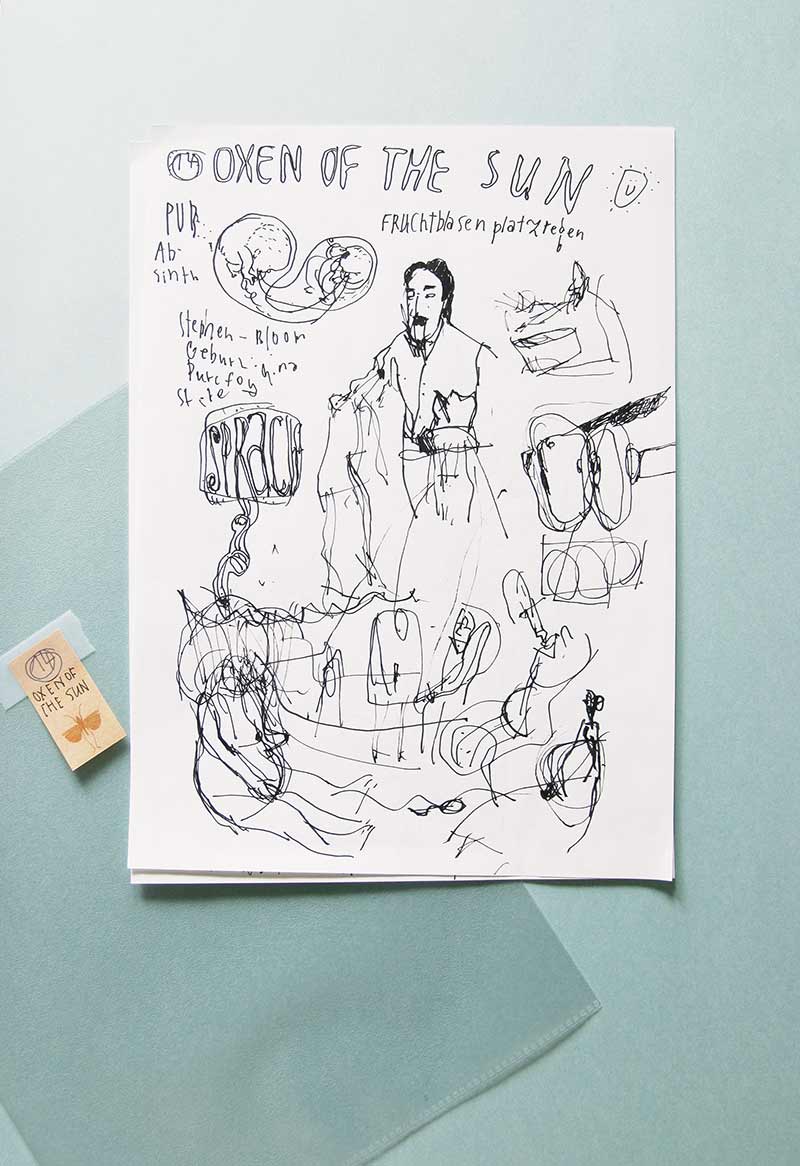 14 OXEN OF THE SUN
PUB
Ab-
sinth
FRUChtblasen platzregen
Stephen - Bloom
Geburt
Purefoy
Stile
SPRACHE
14
OXEN OF
THE SUN